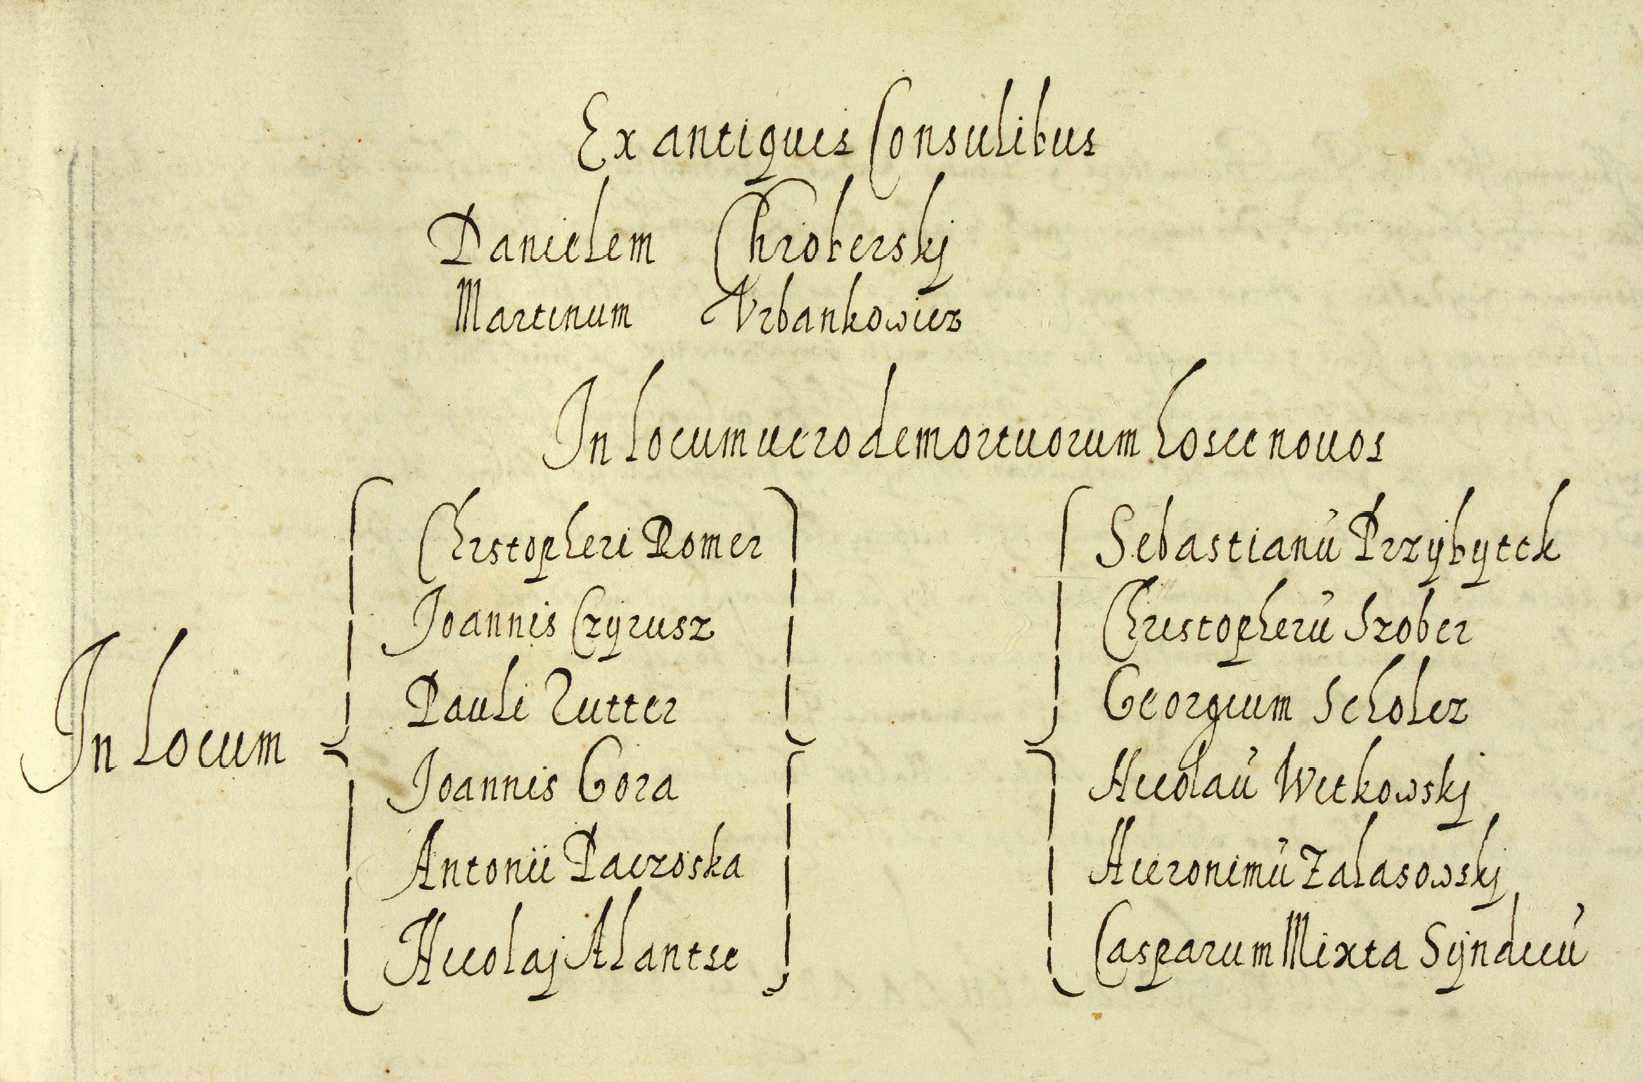 Ex antiquis Consulibus
Danielem Chroberskj
Martinum Vrbankowicz
In locum uero demortuorum hosce nouos
In locum
Christopheri Romer
Joannis Czÿrusz
Pauli Zutter
Joannis Gora
Antonii Paczoska
Nicolaj Alantse
Sebastianū Przÿbÿtek
Christopherū Szober
Georgium Scholcz
Nicolaū Witkowskj
Hieronimū Zalasowskj
Casparum Mixta Sÿndicū